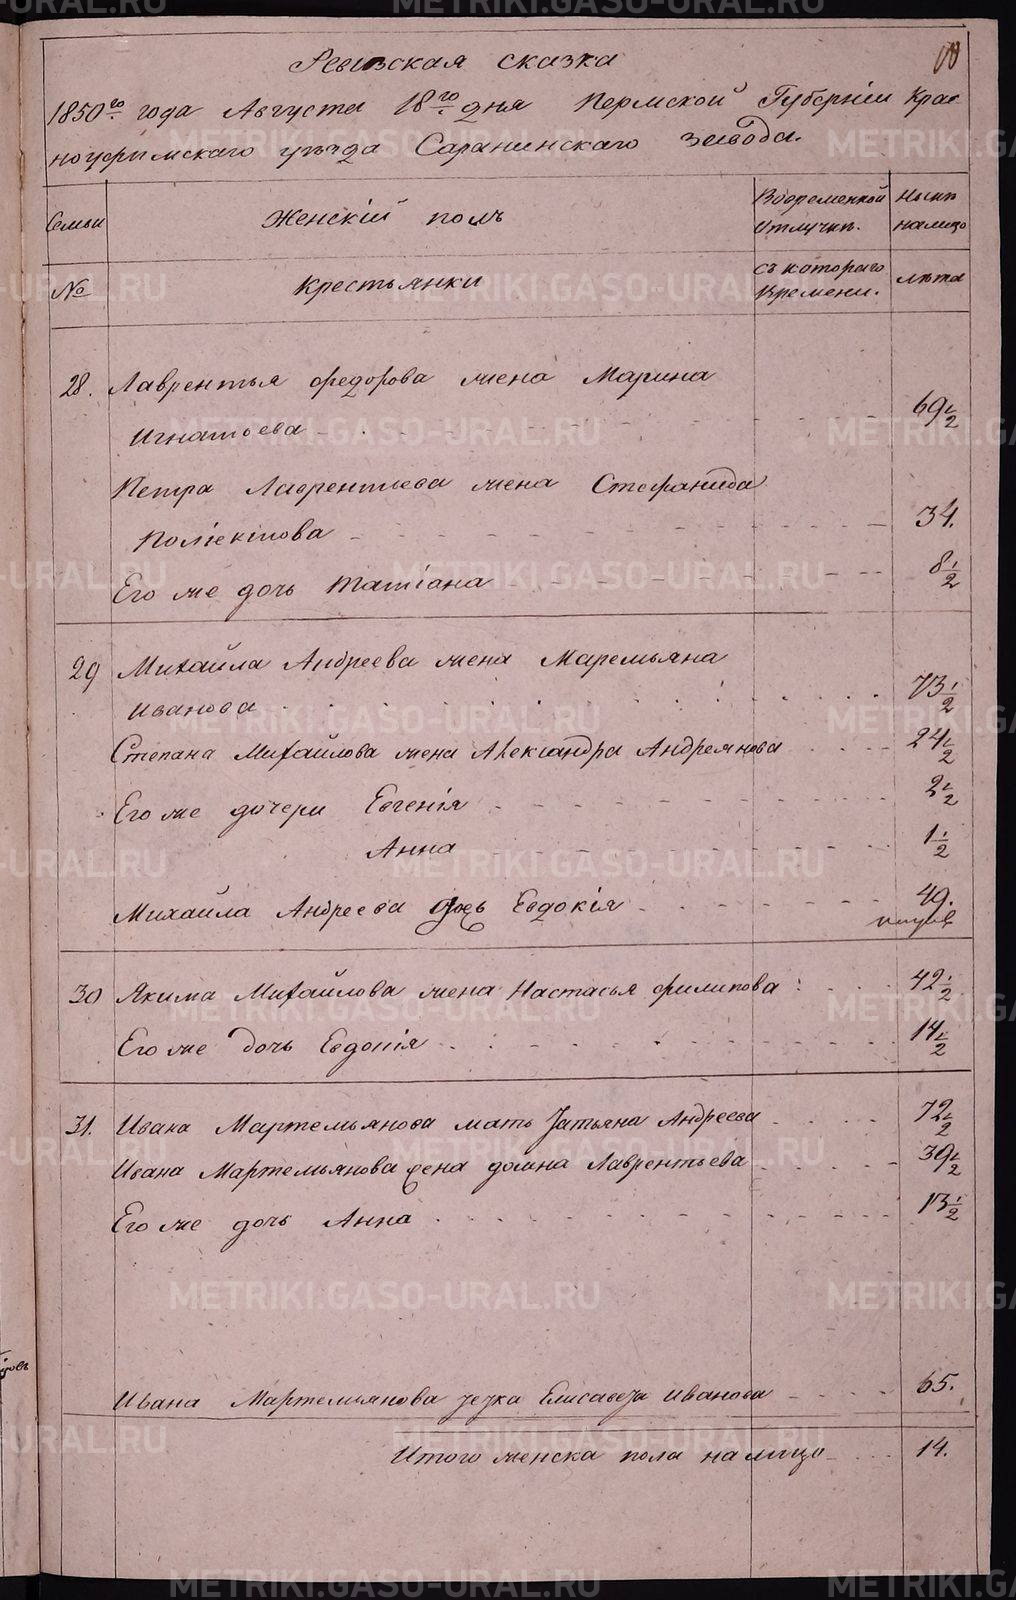 Ревизская сказка
1850го года Августа 18го дня Пермской Губернiи Крас
ноуфимскаго уезда Саранинскаго завода.
Семьи Женскiй полъ Во временной Отлучки. Ныне налицо
№ Крестьянки съ котораго времени. лета
28. Лаврентья Федорова жена Марина
Игнатьева 69 1/2
Петра Лаврентьева жена Стефанида
Полiектова 34.
Его же дочь Татiана 8 1/2
29 Михайла Андреева жена Маремьяна
Иванова 73 1/2
Степана Михайлова жена Александра Андреянова 24 1/2
Его же дочери Евгенiя 2 1/2
Анна 1 1/2
Михайла Андреева дочь Евдокiя 49.
30 Якима Михайлова жена Настасья Филипова 42 1/2
Его же дочь Евдокiя 14 1/2
31. Ивана Мартемьянова мать Татьяна Андреева 72 1/2
Ивана Мартемьянова жена домна Лаврентьева 39 1/2
Его же дочь Анна 13 1/2
Ивана Мартемьянова тетка Елисавета Иванова 65.
Итого женска пола налицо 14.
METRIKI.GASO-URAL.RU